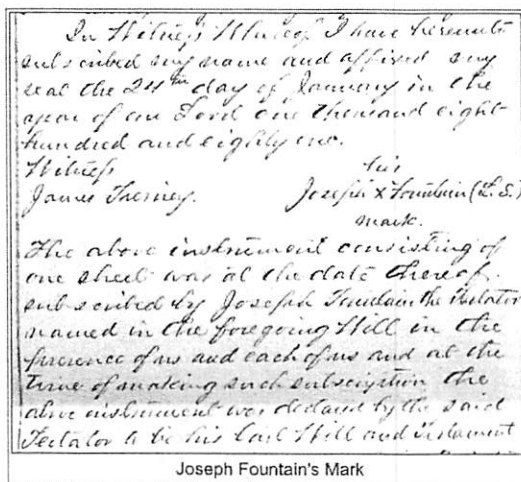 In Witness Whereof I have hereunto
subscribed my name and affixed my
seal the 24th day of January in the
year of our Lord one thousand eight
hundred and eighty one.
Witness his
James Tierney. Joseph X Fountain (L.S.)
mark.
The above instrument consisting of
one sheet was at the date thereof
subscribed by Joseph Fountain the Testator
named in the foregoing Will in the
presence of us and each of us and at the
time of making such subscription the
above instrument was declared by the said
Testator to be his last Will and Testament
Joseph Fountain's Mark